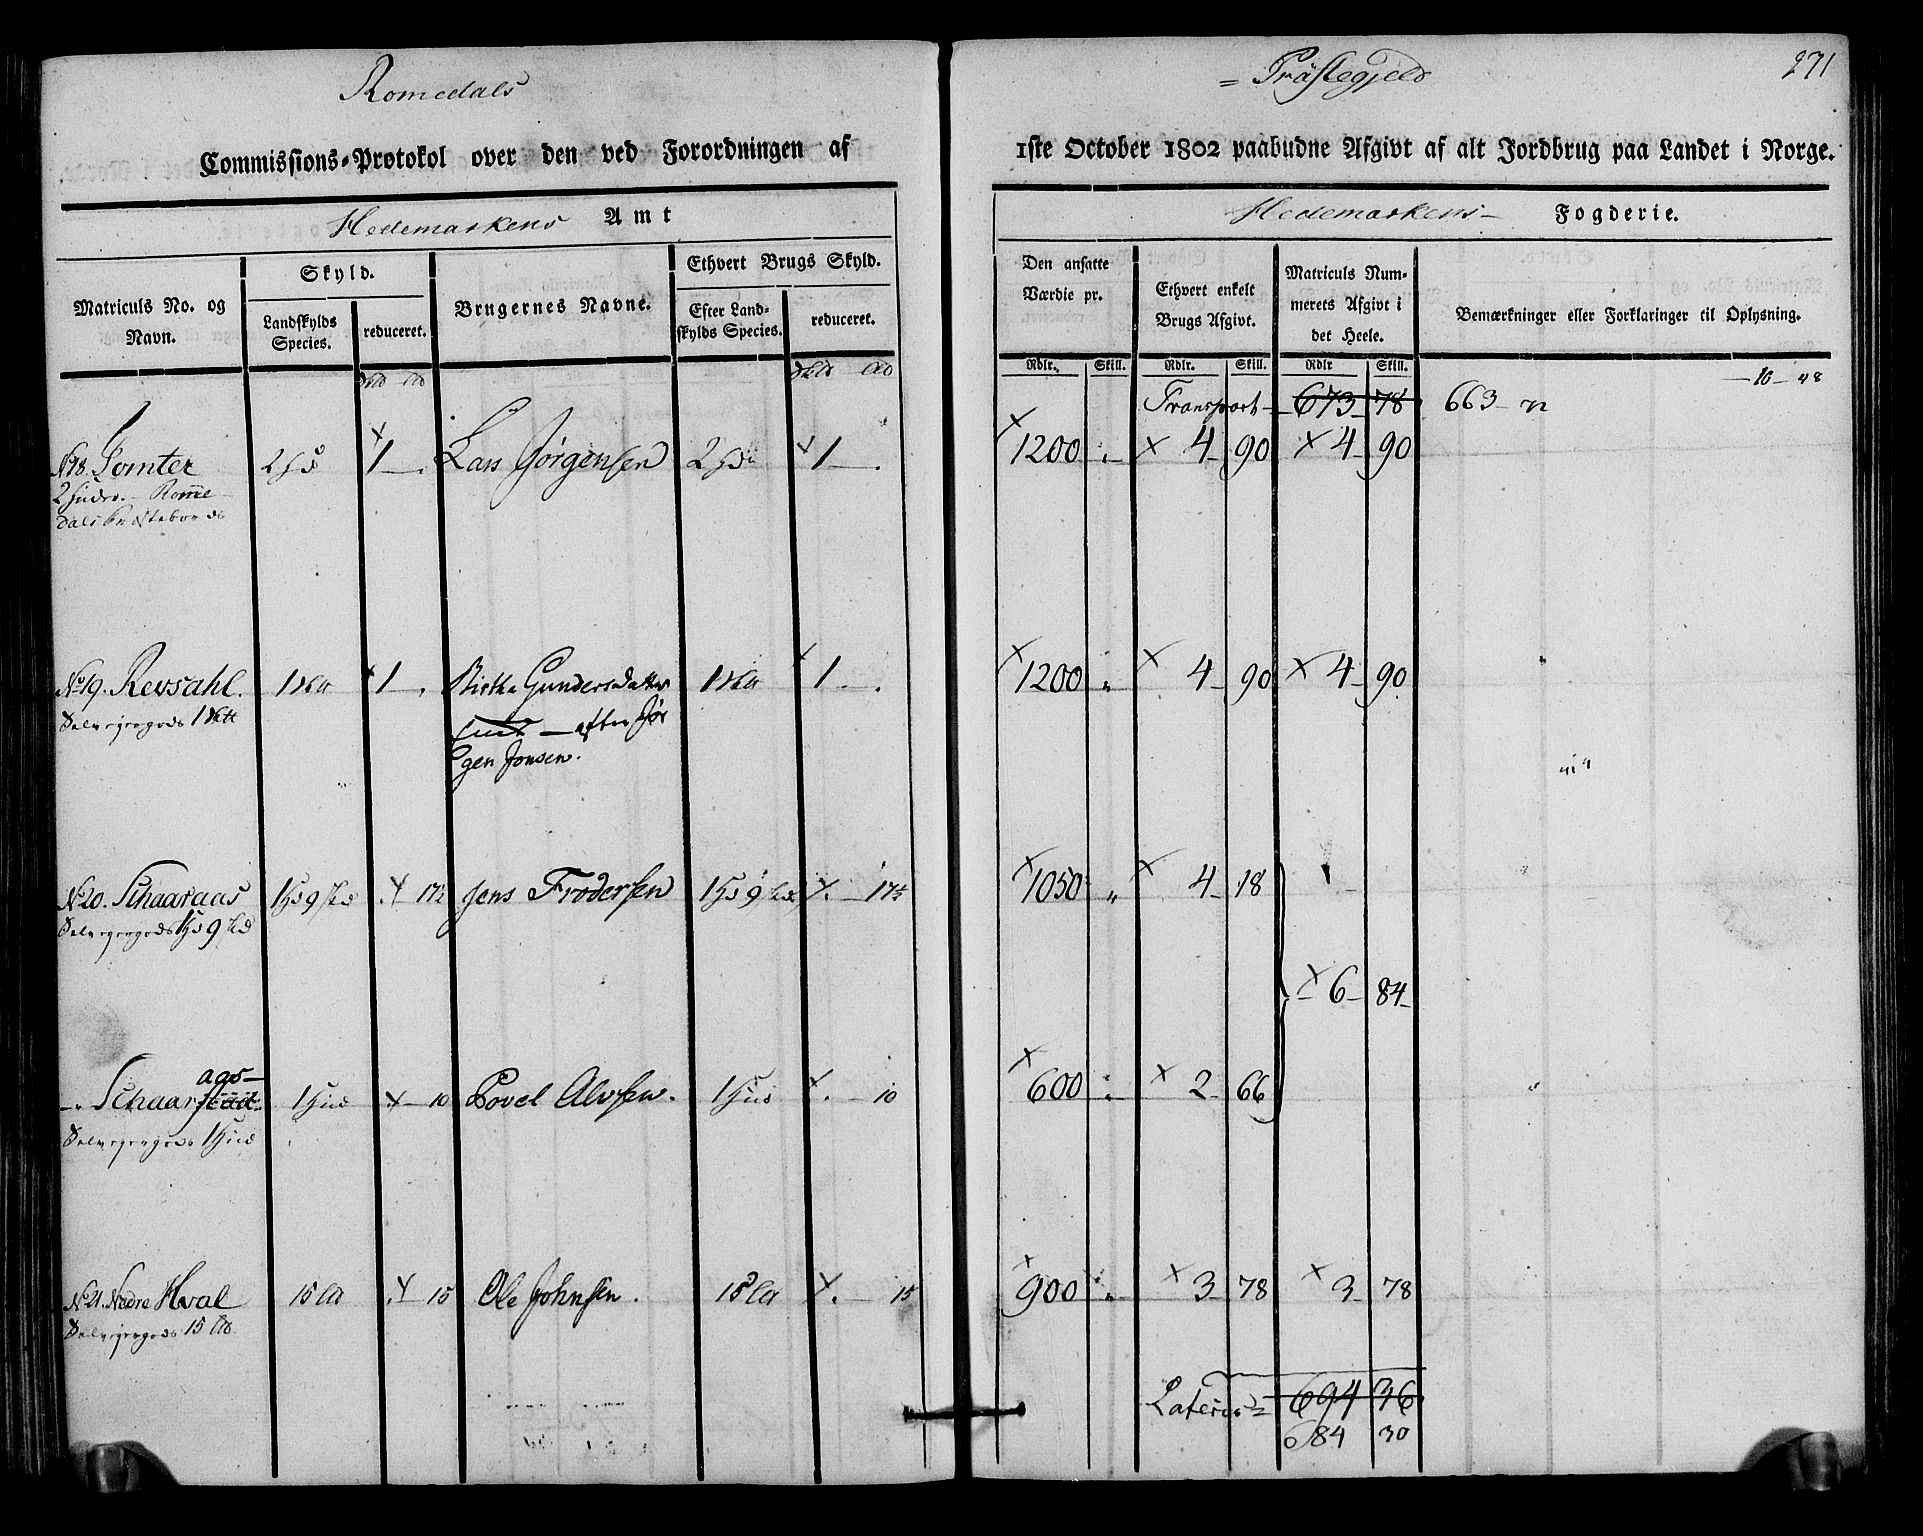 Romedals = Præstegjeld 271
Commissions-Protokol over den ved Forordningen af 1ste October 1802 paabudne Afgivt af alt Jordbrug paa Landet i Norge.
Hedemarkens Amt
Hedemarkens Fogderie.
Matriculs No. og Navn.
Skyld.
Landskylds Species.
reduceret.
Brugernes Navne.
Ethvert Brugs Skyld.
Efter Landskylds Species.
reduceret.
Den ansatte Værdie pr.
Ethvert enkelt Brugs Afgivt.
Matriculs Nummerets Afgivt i det Heele.
Bemærkninger eller Forklaringer til Oplysning.
Rdlr. Skill. Rdlr. Skill. Rdlr Skill.
10 - 48
Transport - 673 - 78 663 - 72
No 18. Tomter 2 1 Lars Jørgensen 2 1 1200 4 - 90 4 - 90
2 Huder. - Rome-
dals
No 19. Revsahl. 1 1 Birthe Gundersdatter 1 1 1200 4 - 90 4 - 90
Selveyergods 1
efter Jør
gen Jonsen.
No 20. Schaaraas 9 17½ Jens Frodersen 9 17½ 1050 4 - 18
Selveyergods 9
6 - 84
Schaar aas 1 Hud 10 Povel Alvsen. 1 Hud 10 600 2 - 66
Selveyergods 1 Hud
No 21. Nedre Hval 15 15 Ole Johnsen. 15 15 900 3 - 78 3 - 78
Selveyergods 15
Lateris = 694 36
684 30